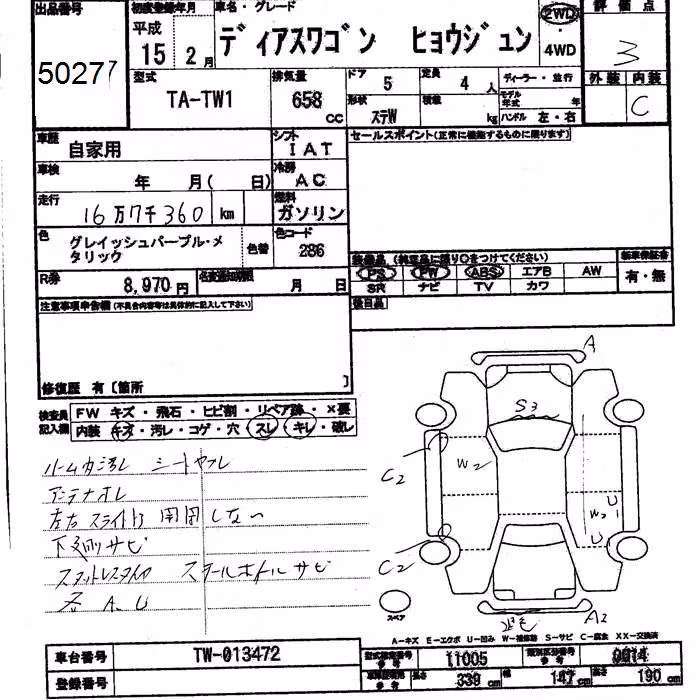 出品番号
50277
初度登録年月
平成
15 2月
車名・グレード
ディアスワゴン ヒョウジュン
2WD
4WD
評価点
3
型式
TA-TW1
排気量
658 CC
ドア 5
定員 4 人
形状 ステW
積載 kg
ディーラー・並行
モデル年式 年
ハンドル 左・右
外装 内装
C
車歴
自家用
シフト
IAT
車検
年 月( 日)
冷房
AC
走行
16万7千360 km
燃料
ガソリン
色
グレイッシュパープル・メタリック
色替
色コード
286
R券
8,970円
名変通知期限
月 日
セールスポイント(正常に機能するものに限ります)
装備品(検定品に限り○をつけてください)
PS PW ABS エアB AW
SR ナビ TV カワ
新車保証書
有・無
後日品
注意事項申告欄(不具合内容等は具体的に記入して下さい)
修復歴 有〔箇所 〕
検査員記入欄
FW キズ・飛石・ヒビ割・リペア跡・×要
内装 キズ・汚レ・コゲ・穴 スレ・キレ・破レ
ルーム内汚レ シートヤブレ
アンテナオレ
下廻サビ
スタットレスタイヤ スチールホイールサビ
各 A.U
A
S3
W2
C2
W2
U
U
C2
A2
スペア
A-キズ E-エクボ U-凹み W-補修跡 S-サビ C-腐食 XX-交換済
車台番号
TW-013472
登録番号
型式指定番号
参考
11005
類別区分番号
参考
0014
長さ 339 cm
幅 147 cm
高さ 190 cm